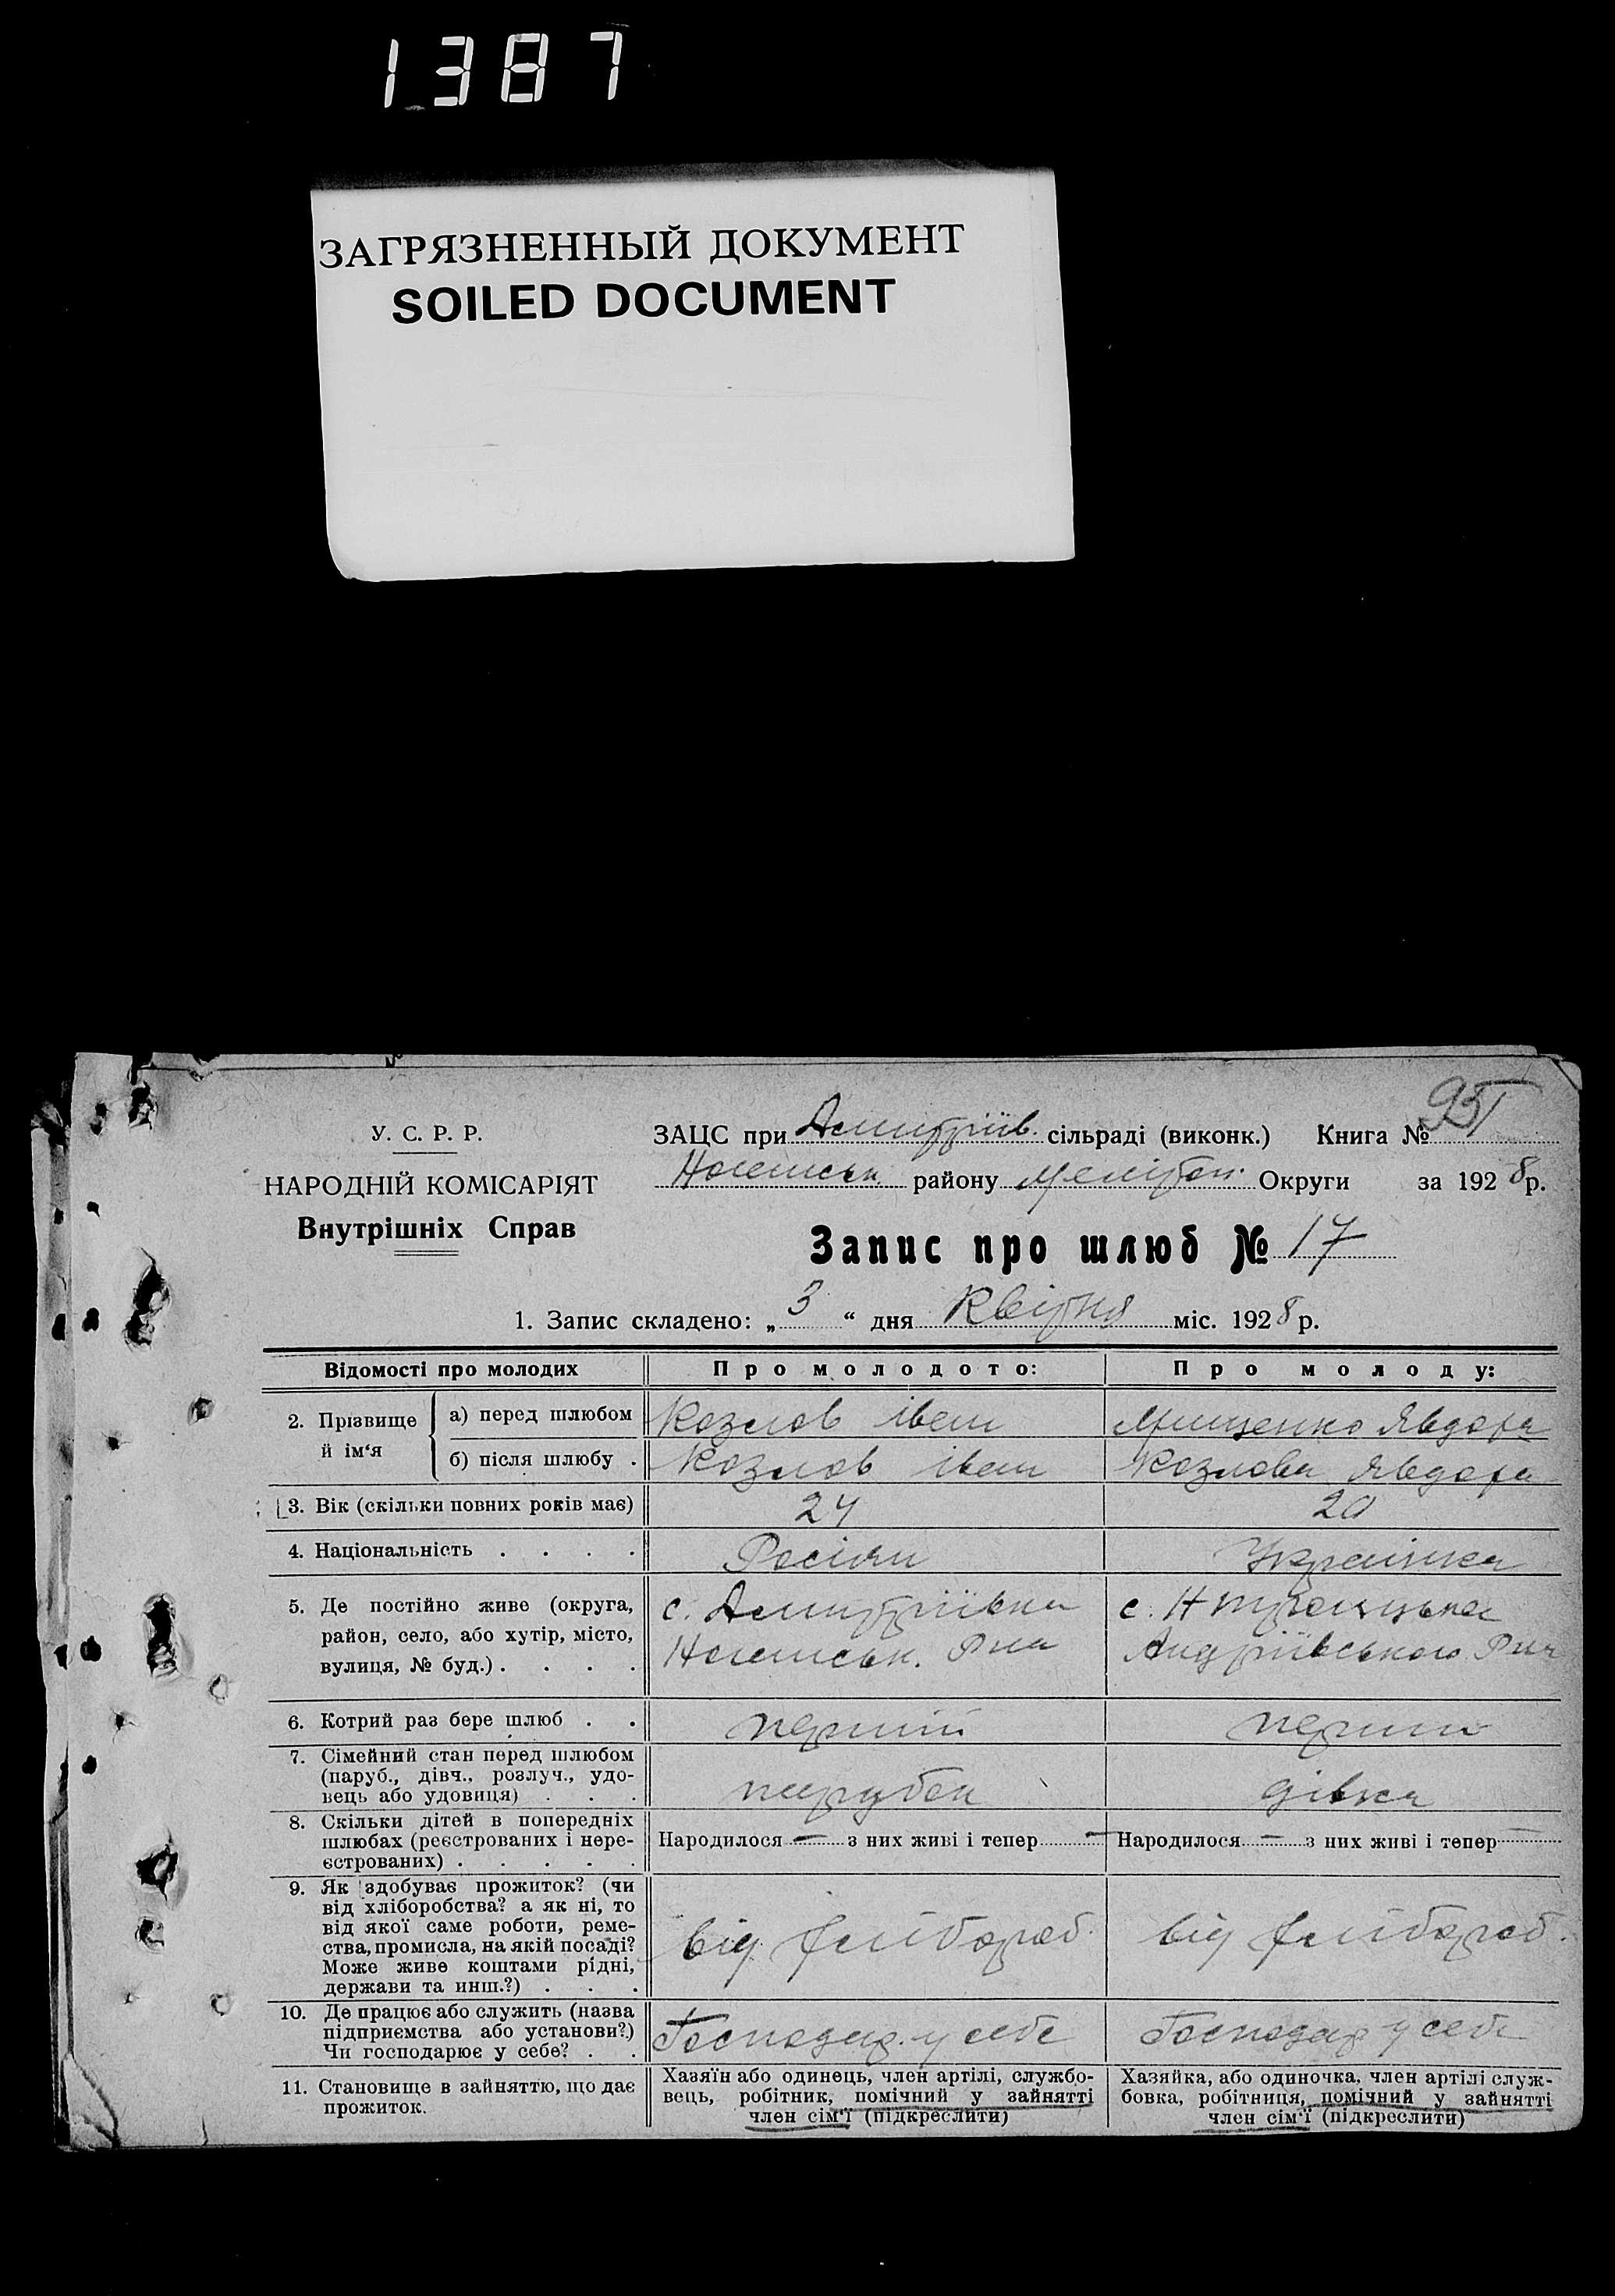 1387
ЗАГРЯЗНЕННЫЙ ДОКУМЕНТ
SOILED DOCUMENT
У. С. Р. Р.
НАРОДНІЙ КОМІСАРІЯТ
Внутрішніх Справ
ЗАЦС при Дмитріїв. сільраді (виконк.) Книга №
району Мелітоп. Округи за 1928 р.
Запис про шлюб № 17
1. Запис складено: „ 3 “ дня Квітня міс. 1928 р.
Відомості про молодих
Про молодого:
Про молоду:
2. Прізвище й ім‘я
а) перед шлюбом
Козлов Іван
Мищенко Явдоха
б) після шлюбу .
Козлов Іван
Козлова Явдоха
3. Вік (скільки повних років має)
24
20
4. Національність . . . .
Росіян
Українка
5. Де постійно живе (округа,
район, село, або хутір, місто,
вулиця, № буд.) . . . .
с. Дмитріївка
Рна
с.
Андріївського Рна
6. Котрий раз бере шлюб . .
перший
перший
7. Сімейний стан перед шлюбом
(паруб., дівч., розлуч., удо-
вець або удовиця) . . .
парубок
дівка
8. Скільки дітей в попередніх
шлюбах (реєстрованих і нере-
єстрованих) . . . . .
Народилося — з них живі і тепер —
Народилося — з них живі і тепер
9. Як здобуває прожиток? (чи
від хліборобства? а як ні, то
від якої саме роботи, реме-
ства, промисла, на якій посаді?
Може живе коштами рідні,
держави та инш.?) . . .
від хлібороб.
від хлібороб.
10. Де працює або служить (назва
підприємства або установи?)
Чи господарює у себе? . .
Господар. у себе
Господар у себе
11. Становище в зайняттю, що дає
прожиток.
Хазяїн або одинець, член артілі, службо-
вець, робітник, помічний у зайнятті
член сім‘ї (підкреслити)
Хазяйка, або одиночка, член артілі служ-
бовка, робітниця, помічний у зайнятті
член сім‘ї (підкреслити)